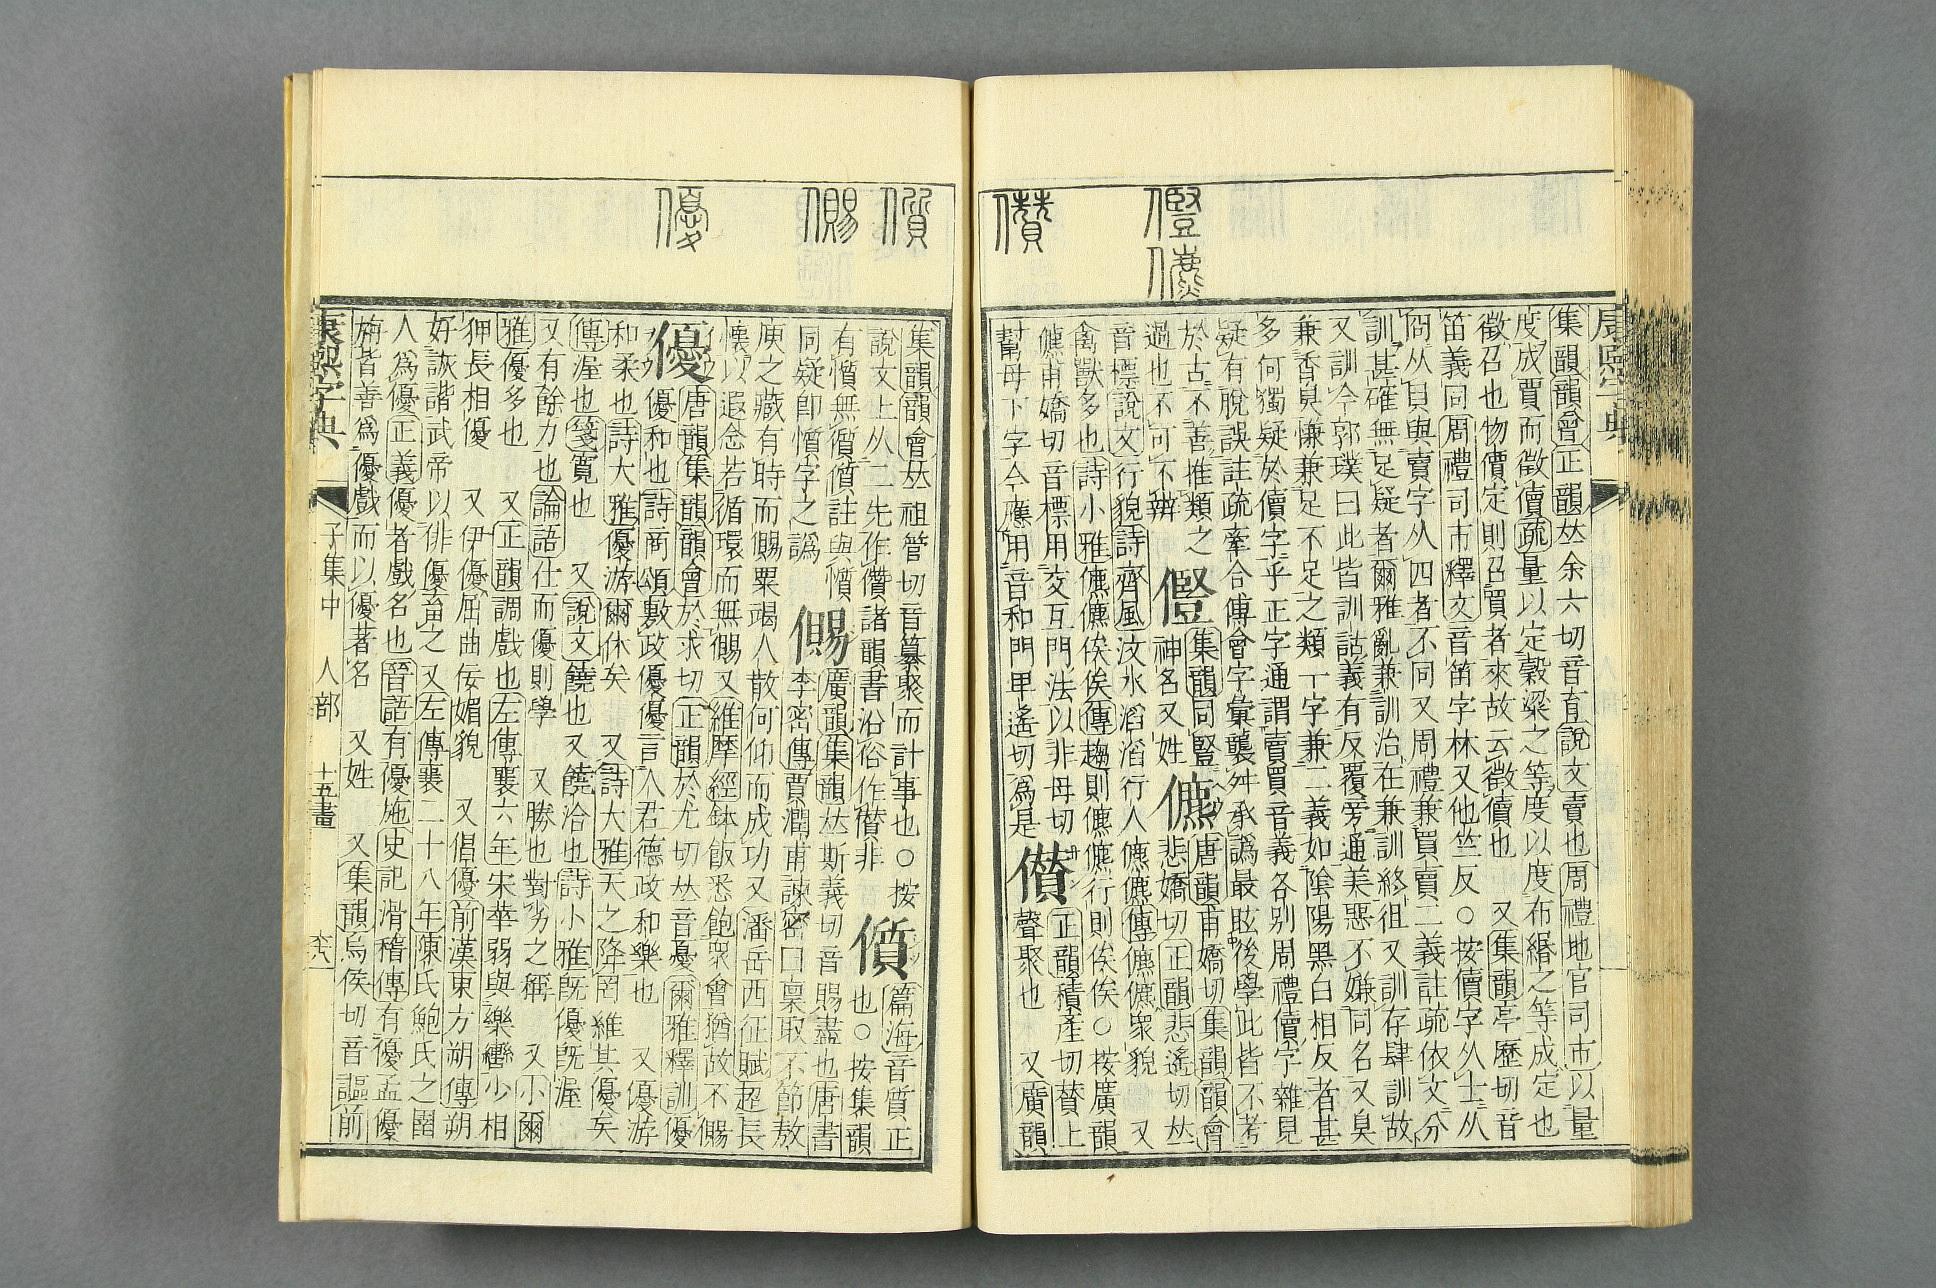 儧 僼 儮
集韻韻會正韻𠀤余六切音育說文賣也周禮地官司市以量
度成賈而徵儥疏量以定穀粱之等度以度布緡之等成定也
徵召也物價定則召買者來故云徵儥也 又集韻亭歷切音
笛義同周禮司市釋文音笛字林又他竺反○按儥字从士从
㒺从貝與賣字从四者不同又周禮兼買賣二義註疏依文分
訓甚確無足疑者爾雅亂兼訓治在兼訓終徂又訓存肆訓故
又訓今郭璞曰此皆訓詁義有反覆旁通美惡不嫌同名又臭
兼香臭慊兼足不足之類一字兼二義如陰陽黑白相反者甚
多何獨疑於儥字乎正字通謂賣買音義各別周禮儥字雜見
疑有脫誤註疏牽合傅會字彙襲舛承譌最眩後學此皆不考
於古不善推類之
過也不可不辨
集韻同豎
神名又姓
儦
唐韻甫嬌切集韻韻會
悲嬌切正韻悲遙切𠀤
音標說文行貌詩齊風汶水滔滔行人儦儦傳儦儦衆貌 又
禽獸多也詩小雅儦儦俟俟傳趨則儦儦行則俟俟○按廣韻
儦甫嬌切音標用交互門法以非母切
幫母下字今應用音和門甲遙切爲是
儧
正韻積產切賛上
聲聚也 又廣韻
優 儩 儨
集韻韻會𠀤祖管切音纂聚而計事也○按
說文上从二先作儹諸韻書沿俗作僣非
儨
篇海音質正
也○按集韻
有懫無儨儨註與懫
同疑卽懫字之譌
儩
廣韻集韻𠀤斯義切音賜盡也唐書
李密傳賈潤甫諫密曰稟取不節敖
庾之藏有時而儩粟竭人散何仰而成功又潘岳西征賦超長
懷以遐念若循環而無儩又維摩經鉢飯悉飽衆會猶故不儩
優
唐韻集韻韻會於求切正韻於尤切𠀤音憂爾雅釋訓優
優和也詩商頌敷政優優言人君德政和樂也 又優游
和柔也詩大雅優游爾休矣 又詩大雅天之降罔維其優矣
傳渥也箋寬也 又說文饒也又饒洽也詩小雅旣優旣渥
又有餘力也論語仕而優則學 又勝也對劣之稱 又小爾
雅優多也 又正韻調戲也左傳襄六年宋華弱與樂轡少相
狎長相優 又伊優屈曲佞媚貌 又倡優前漢東方朔傳朔
好詼諧武帝以俳優畜之又左傳襄二十八年陳氏鮑氏之圉
人爲優正義優者戲名也晉語有優施史記滑稽傳有優孟優
旃皆善爲優戲而以優著名 又姓 又集韻烏侯切音謳前
康熙字典 子集中 人部 十五畫